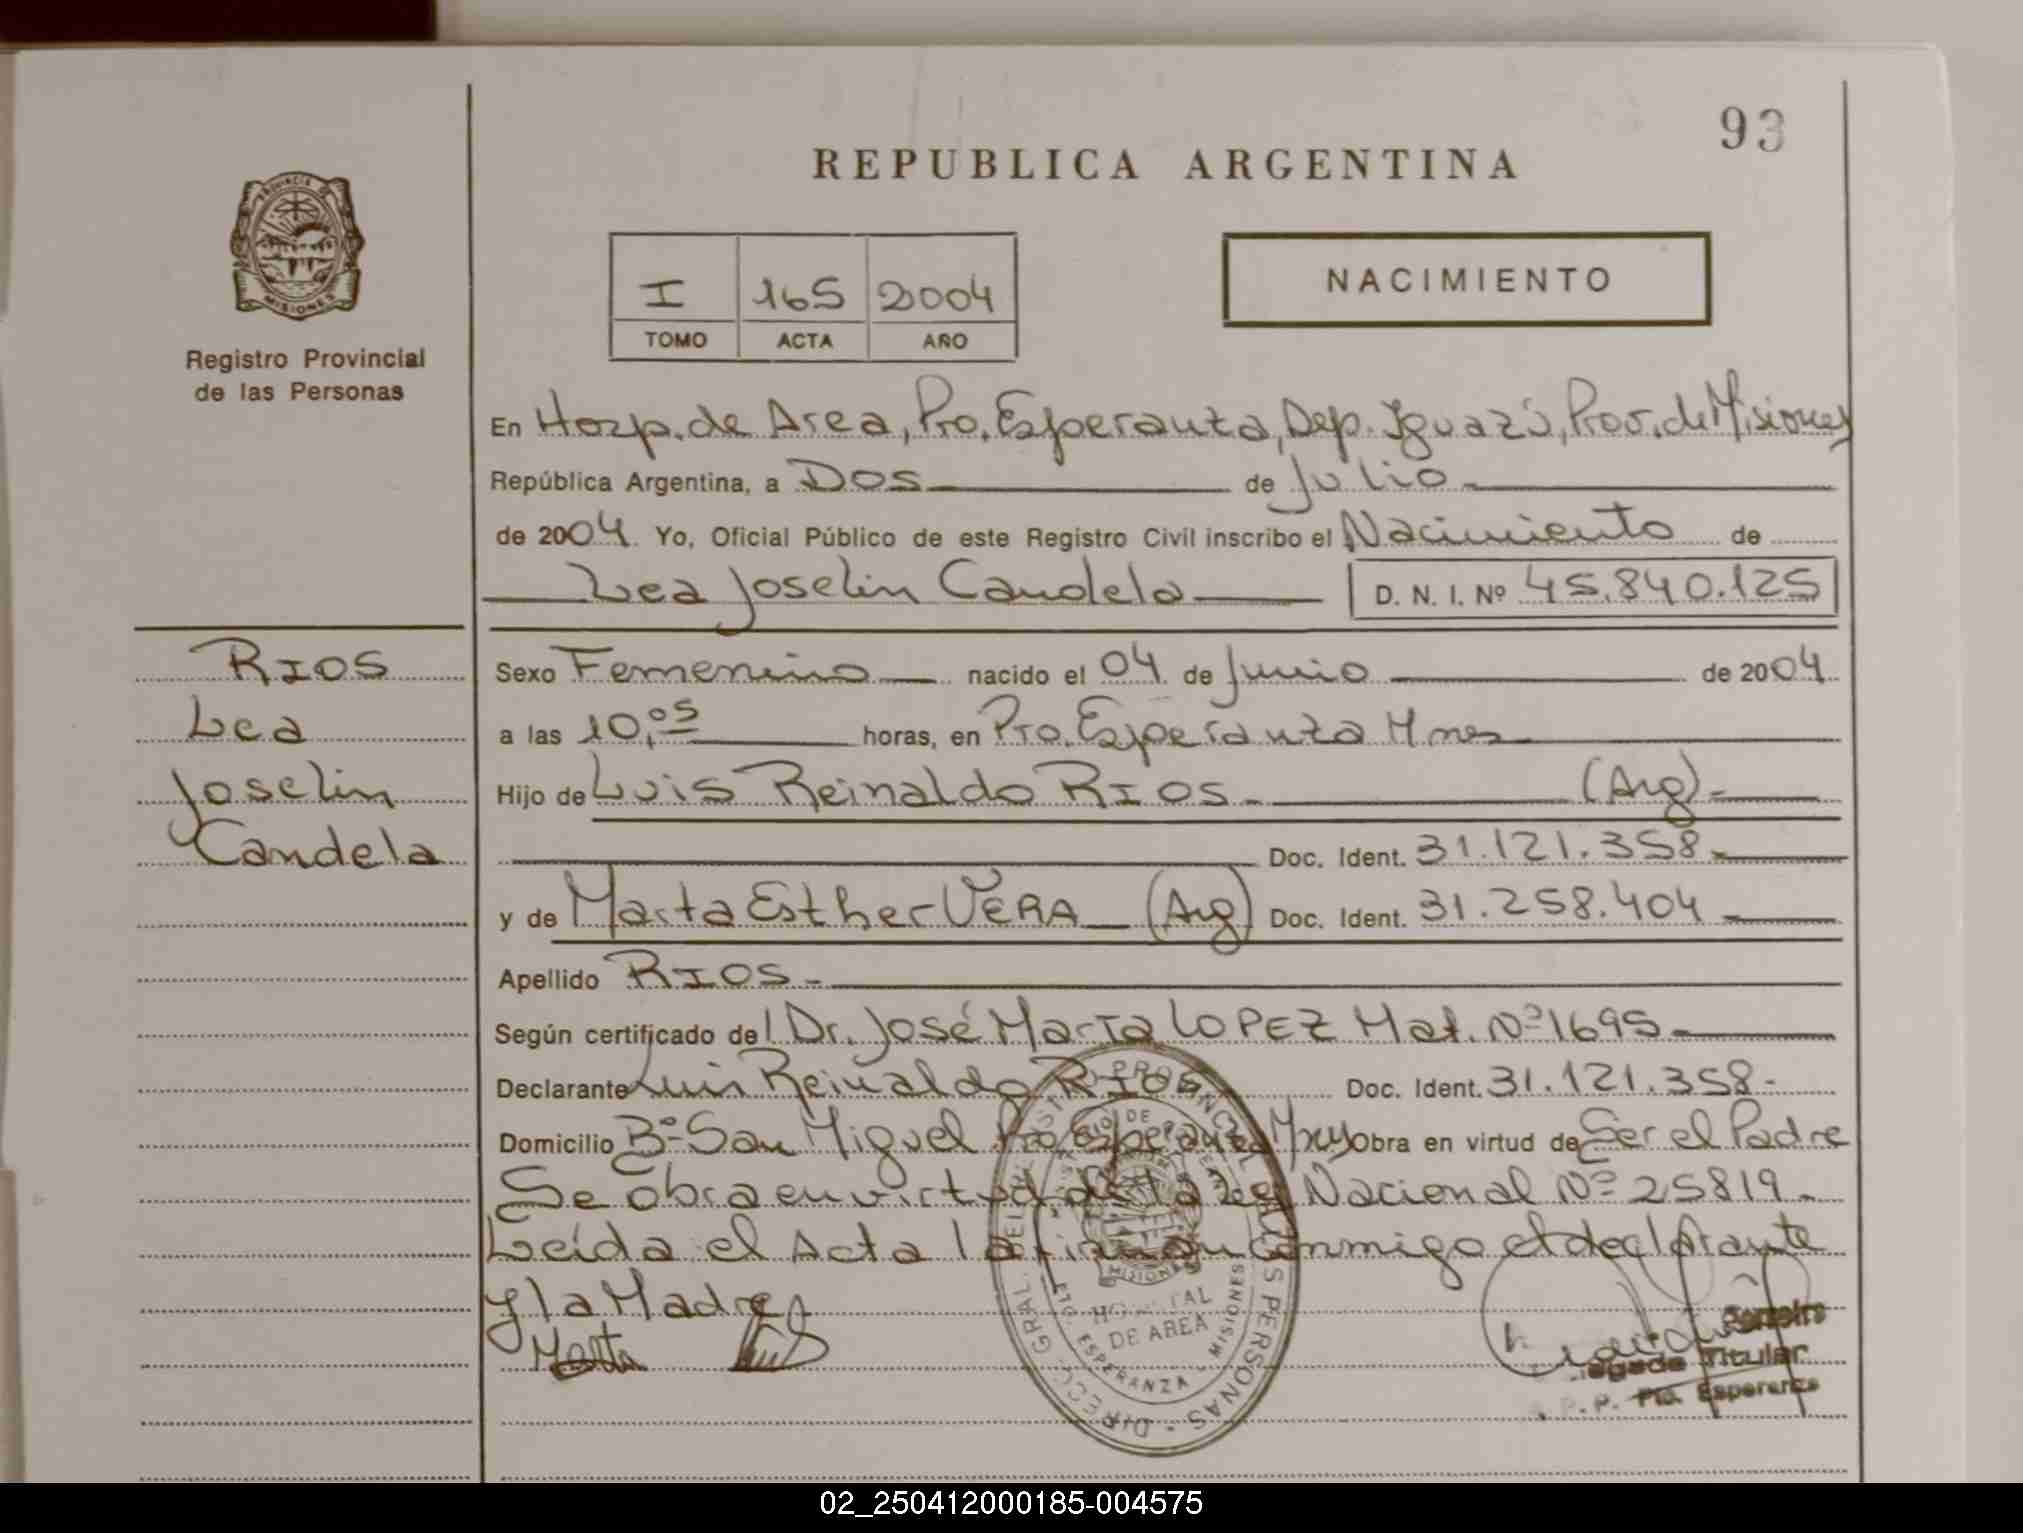 93
REPUBLICA ARGENTINA
PROVINCIA DE
MISIONES
Registro Provincial
de las Personas
I 165 2004
TOMO ACTA AÑO
NACIMIENTO
En Hosp. de Area, Pto. Esperanza, Dep. Iguazú, Prov. de Misiones
República Argentina, a Dos de Julio
de 2004 Yo, Oficial Público de este Registro Civil inscribo el Nacimiento de
Lea Joselin Candela D. N. I. Nº 45.840.125
RIOS
Lea
Joselin
Candela
Sexo Femenino nacido el 04 de Junio de 2004
a las 10,05 horas, en Pto. Esperanza Mnes
Hijo de Luis Reinaldo RIOS (Arg)
Doc. Ident. 31.121.358
y de Marta Esther VERA (Arg) Doc. Ident. 31.258.404
Apellido RIOS
Según certificado del Dr. José María LOPEZ Mat. Nº 1695
Declarante Luis Reinaldo RIOS Doc. Ident. 31.121.358
Domicilio Bº San Miguel Pto Esperanza Obra en virtud de Ser el Padre
Se obra en virtud de la Ley Nacional Nº 25819
Leída el Acta la firman conmigo el declarante
y la Madre
Marta
DIRECC. GRAL. DEL REGISTRO PROVINCIAL DE LAS PERSONAS
MISIONES
HOSPITAL
DE AREA
ESPERANZA - MISIONES
Titular
R.P.P. Pto. Esperanza
02_250412000185-004575